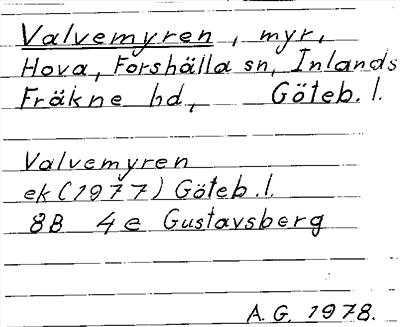 Valvemyren, myr,
Hova, Forshälla sn, Inlands
Fräkne hd, Göteb. l.
Valvemyren
ek (1977) Göteb. l.
8B 4e Gustavsberg
A. G. 1978.